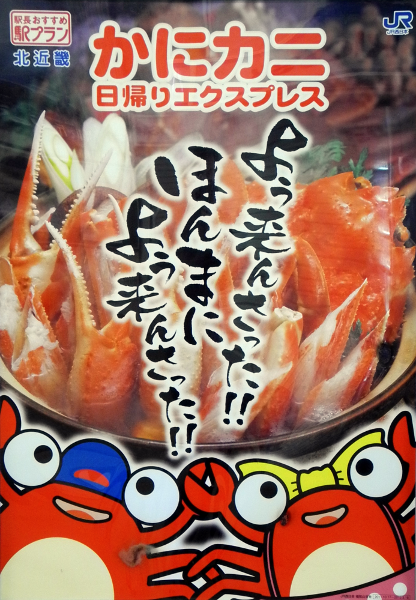 駅長おすすめ
駅プラン
北近畿
JR
JR西日本
かにカニ
日帰りエクスプレス
よう来んさった!!
ほんまに
よう来んさった!!